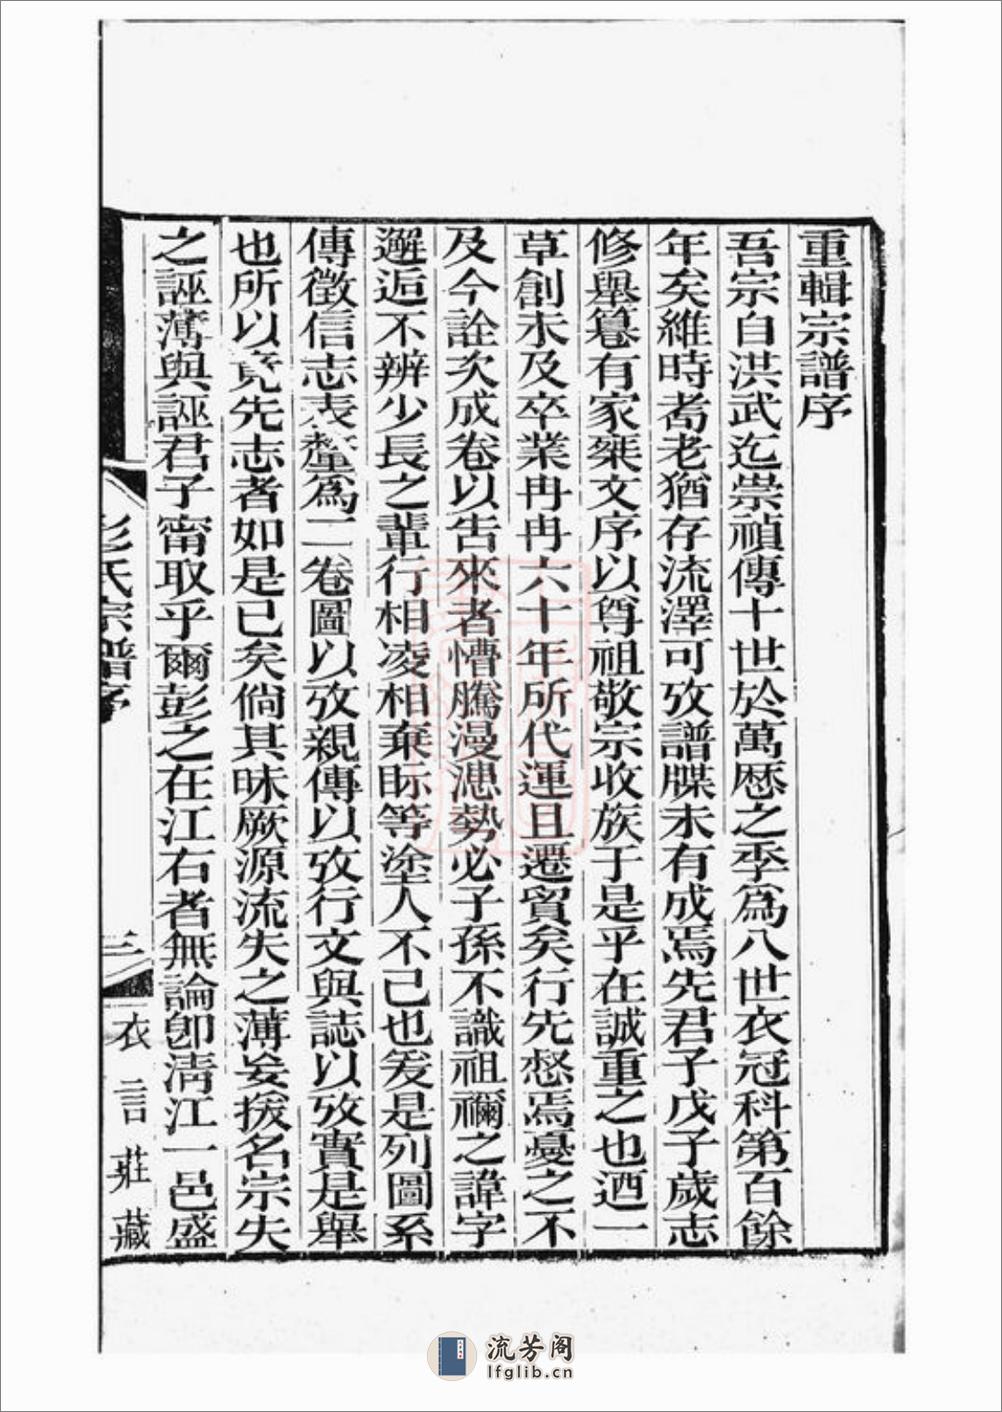 重輯宗譜序
吾宗自洪武迄崇禎傳十世於萬厯之季爲八世衣冠科第百餘
年矣維時耇老猶存流澤可攷譜牒未有成焉先君子戊子歲志
修舉簒有家桀文序以尊祖敬宗收族于是乎在誠重之也迺一
草創未及卒業冉冉六十年所代運且遷貿矣行先愸焉憂之不
及今詮次成卷以告來者懵騰漫漶勢必子孫不識祖禰之諱字
邂逅不辨少長之輩行相凌相棄眎等塗人不已也爰是列圖系
傳徵信志表釐爲二卷圖以攷親傳以攷行文與誌以攷實是舉
也所以竟先志者如是已矣倘其昧厥源流失之薄妄援名宗失
之誣薄與誣君子甯取乎爾彭之在江右者無論卽淸江一邑盛
彭氏宗譜序
三
衣言莊藏
流芳阁
lfglib.cn